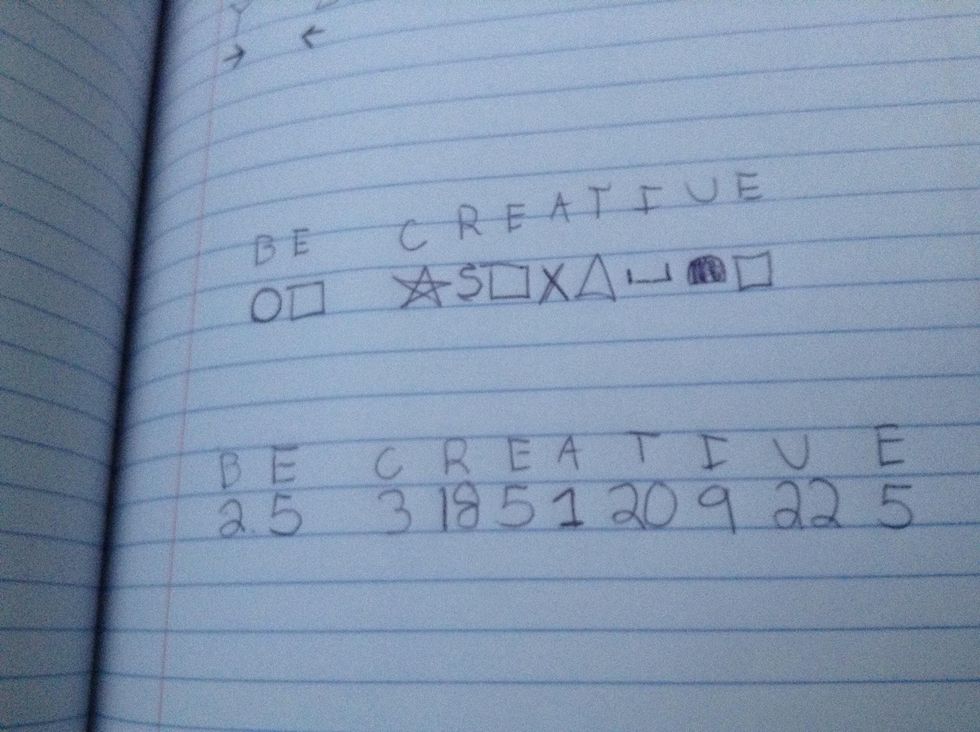 BE CREATIVE
BE CREATIVE
2.5 3 18 5 1 20 9 22 5